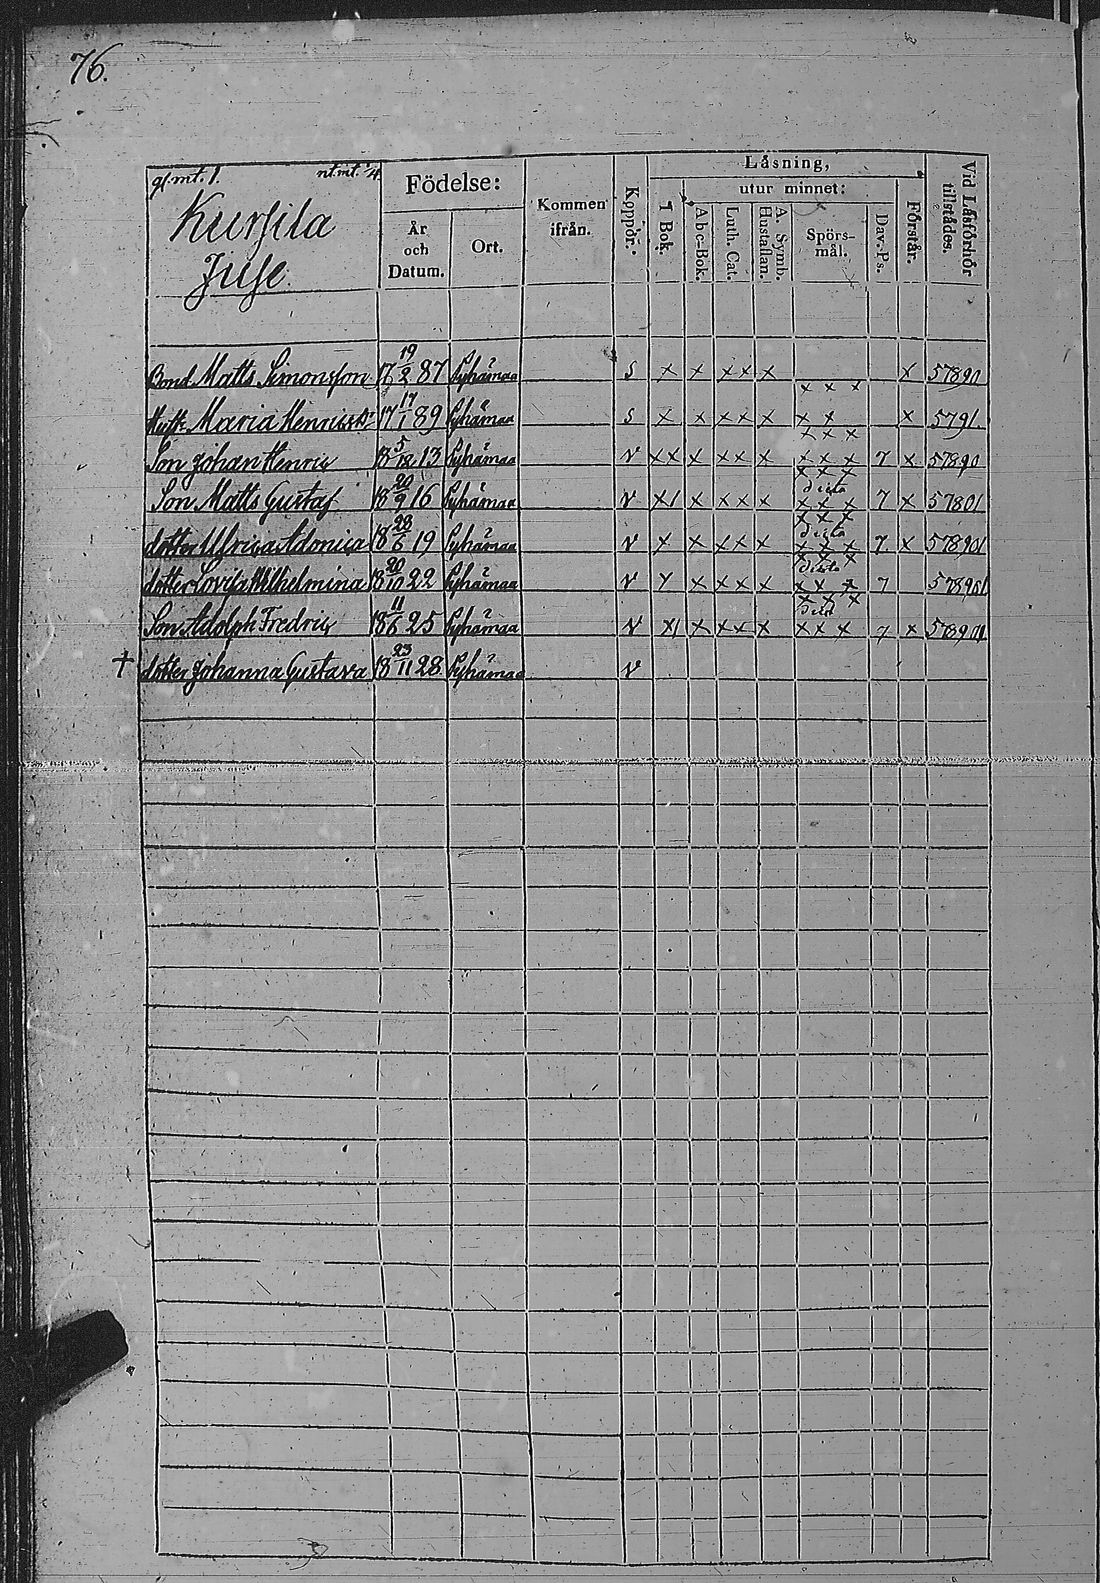 76.
gl. mt. 1. nt. mt. 1/4
Kursila
Juse.
Födelse:
År och Datum.
Ort.
Kommen ifrån.
Koppor.
Låsning,
utur minnet:
I Bok.
Abc-Bok.
Luth. Cat.
A. Symb. Hustaflan.
Spörs-mål.
Dav.-Ps.
Förstår.
Vid Läsförhör tillstädes.
Bond Matts Simonsson 17 19/2 87 Pyhämaa S x x x x x x x x x 57890
Hust. Maria Henricsdr 17 17/1 89 Pyhämaa S x x x x x x x x 5791
Son Johan Henric 18 5/12 13 Pyhämaa V x x x x x x x x x x x x 7 x 57890
Son Matts Gustaf 18 20/9 16 Pyhämaa V x1 x x x x dicta x x x 7 x 57801
dotter Ulrica Adonica 18 28/6 19 Pyhämaa V x x x x x dicta x x x 7. x 578901
dotter Lovisa Wilhelmina 18 20/10 22 Pyhämaa V x x x x x dicta x x x 7 578901
Son Adolph Fredric 18 11/6 25 Pyhämaa V x1 x x x x dict x x x 7 x 578901
† dotter Johanna Gustava 18 23/11 28 Pyhämaa V